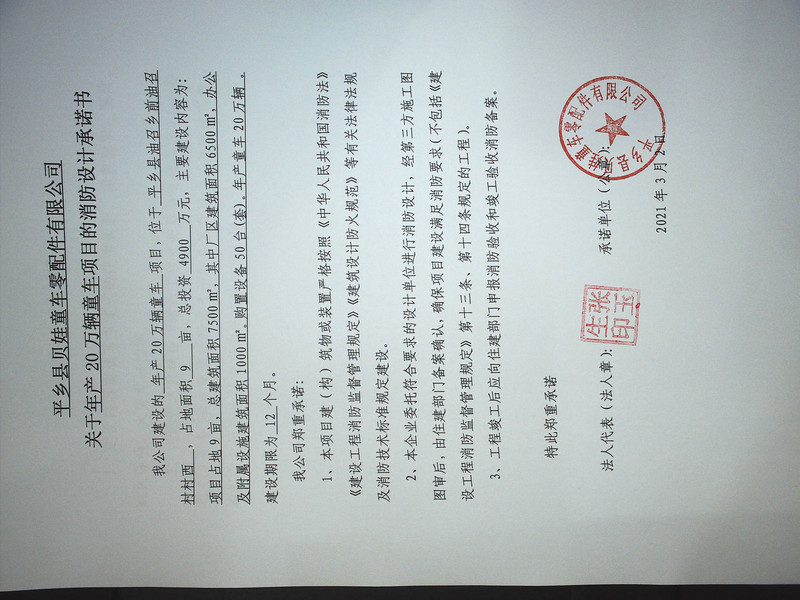 平乡县贝娃童车零配件有限公司
关于年产20万辆童车项目的消防设计承诺书
我公司建设的 年产20万辆童车 项目，位于 平乡县油召乡前油召
村村西 ，占地面积 9 亩，总投资 4900 万元，主要建设内容为：
项目占地9亩，总建筑面积7500㎡，其中厂区建筑面积6500㎡，办公
及附属设施建筑面积1000㎡。购置设备50台(套)。年产童车20万辆。
建设期限为 12 个月。
我公司郑重承诺：
1、本项目建（构）筑物或装置严格按照《中华人民共和国消防法》
《建设工程消防监督管理规定》《建筑设计防火规范》等有关法律法规
及消防技术标准规定建设。
2、本企业委托符合要求的设计单位进行消防设计，经第三方施工图
图审后，由住建部门备案确认，确保项目建设满足消防要求（不包括《建
设工程消防监督管理规定》第十三条、第十四条规定的工程）。
3、工程竣工后应向住建部门申报消防验收和竣工验收消防备案。
特此郑重承诺
法人代表（法人章）：
张玉
生印
承诺单位（公章）：
平乡县贝娃童车零配件有限公司
2021年3月2日